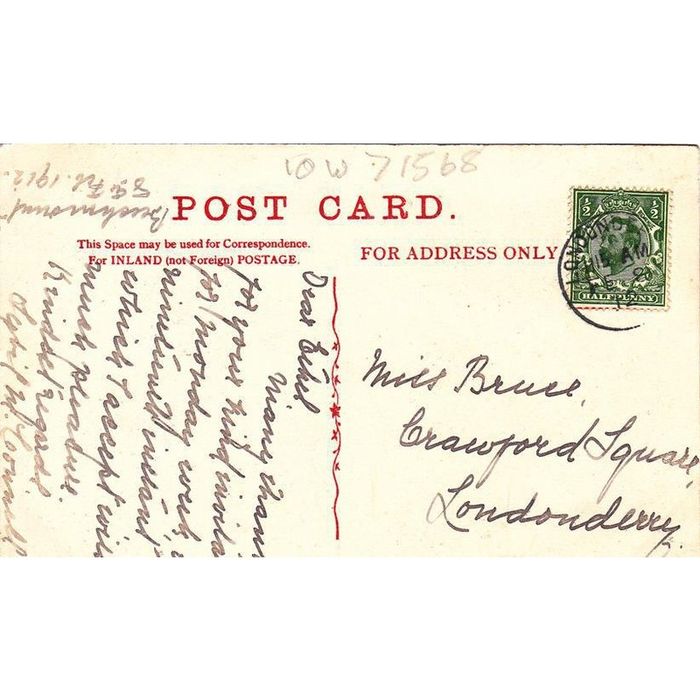 IOW 71568
Beechmount
8th Feb. 1912.
POST CARD.
This Space may be used for Correspondence.
For INLAND (not Foreign) POSTAGE.
FOR ADDRESS ONLY
½ ½
HALFPENNY
LONDOND
AM
12
Dear Ethel
Many than
for your kind invita
for Monday week
instant
which I accept wit
much pleasure.
Kindest regards
Miss Bruce,
Crawford Square,
Londonderry